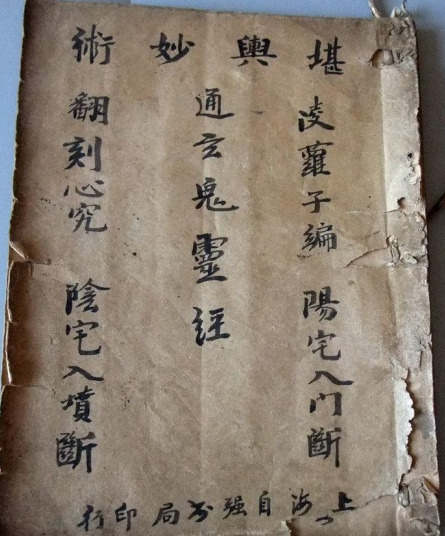 堪輿妙術
凌蘿子編　陽宅入門斷
通玄鬼靈經
翻刻心究　陰宅入墳斷
上海自强书局印行